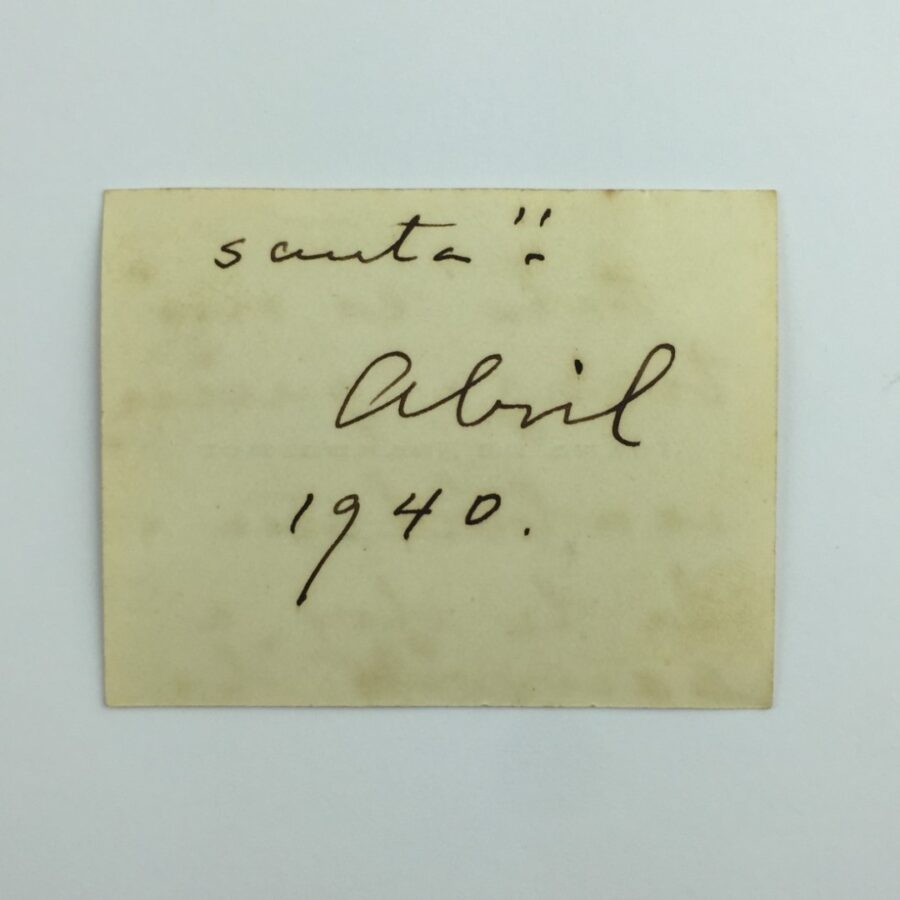 santa".
Abril
1940.